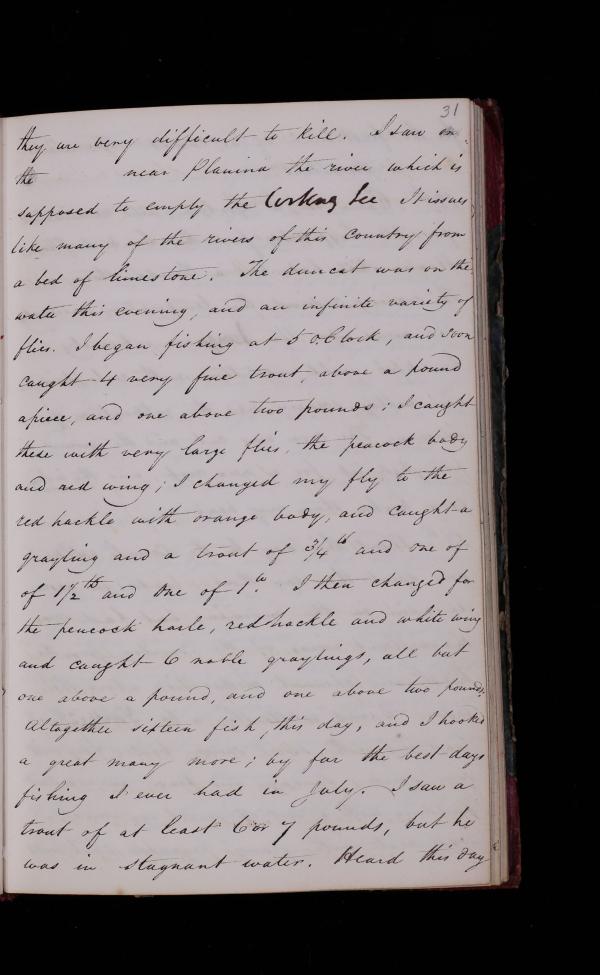 31
they are very difficult to kill. I saw on
the near Planina the river which is
supposed to empty the See It issues
like many of the rivers of this Country from
a bed of limestone. The duncat was on the
water this evening, and an infinite variety of
flies. I began fishing at 5 oClock, and soon
caught 4 very fine trout, above a pound
apiece, and one above two pounds; I caught
these with very large flies, the peacock body
and red wing; I changed my fly to the
red hackle with orange body, and caught a
grayling and a trout of 3/4 lb and one of
of 1 1/2 lb and one of 1 lb. I then changed for
the peacock harle, red hackle and white wing
and caught 6 noble graylings, all but
one above a pound, and one above two pounds.
Altogether sixteen fish, this day, and I hooked
a great many more; by far the best days
fishing I ever had in July. I saw a
trout of at least 6 or 7 pounds, but he
was in stagnant water. Heard this day